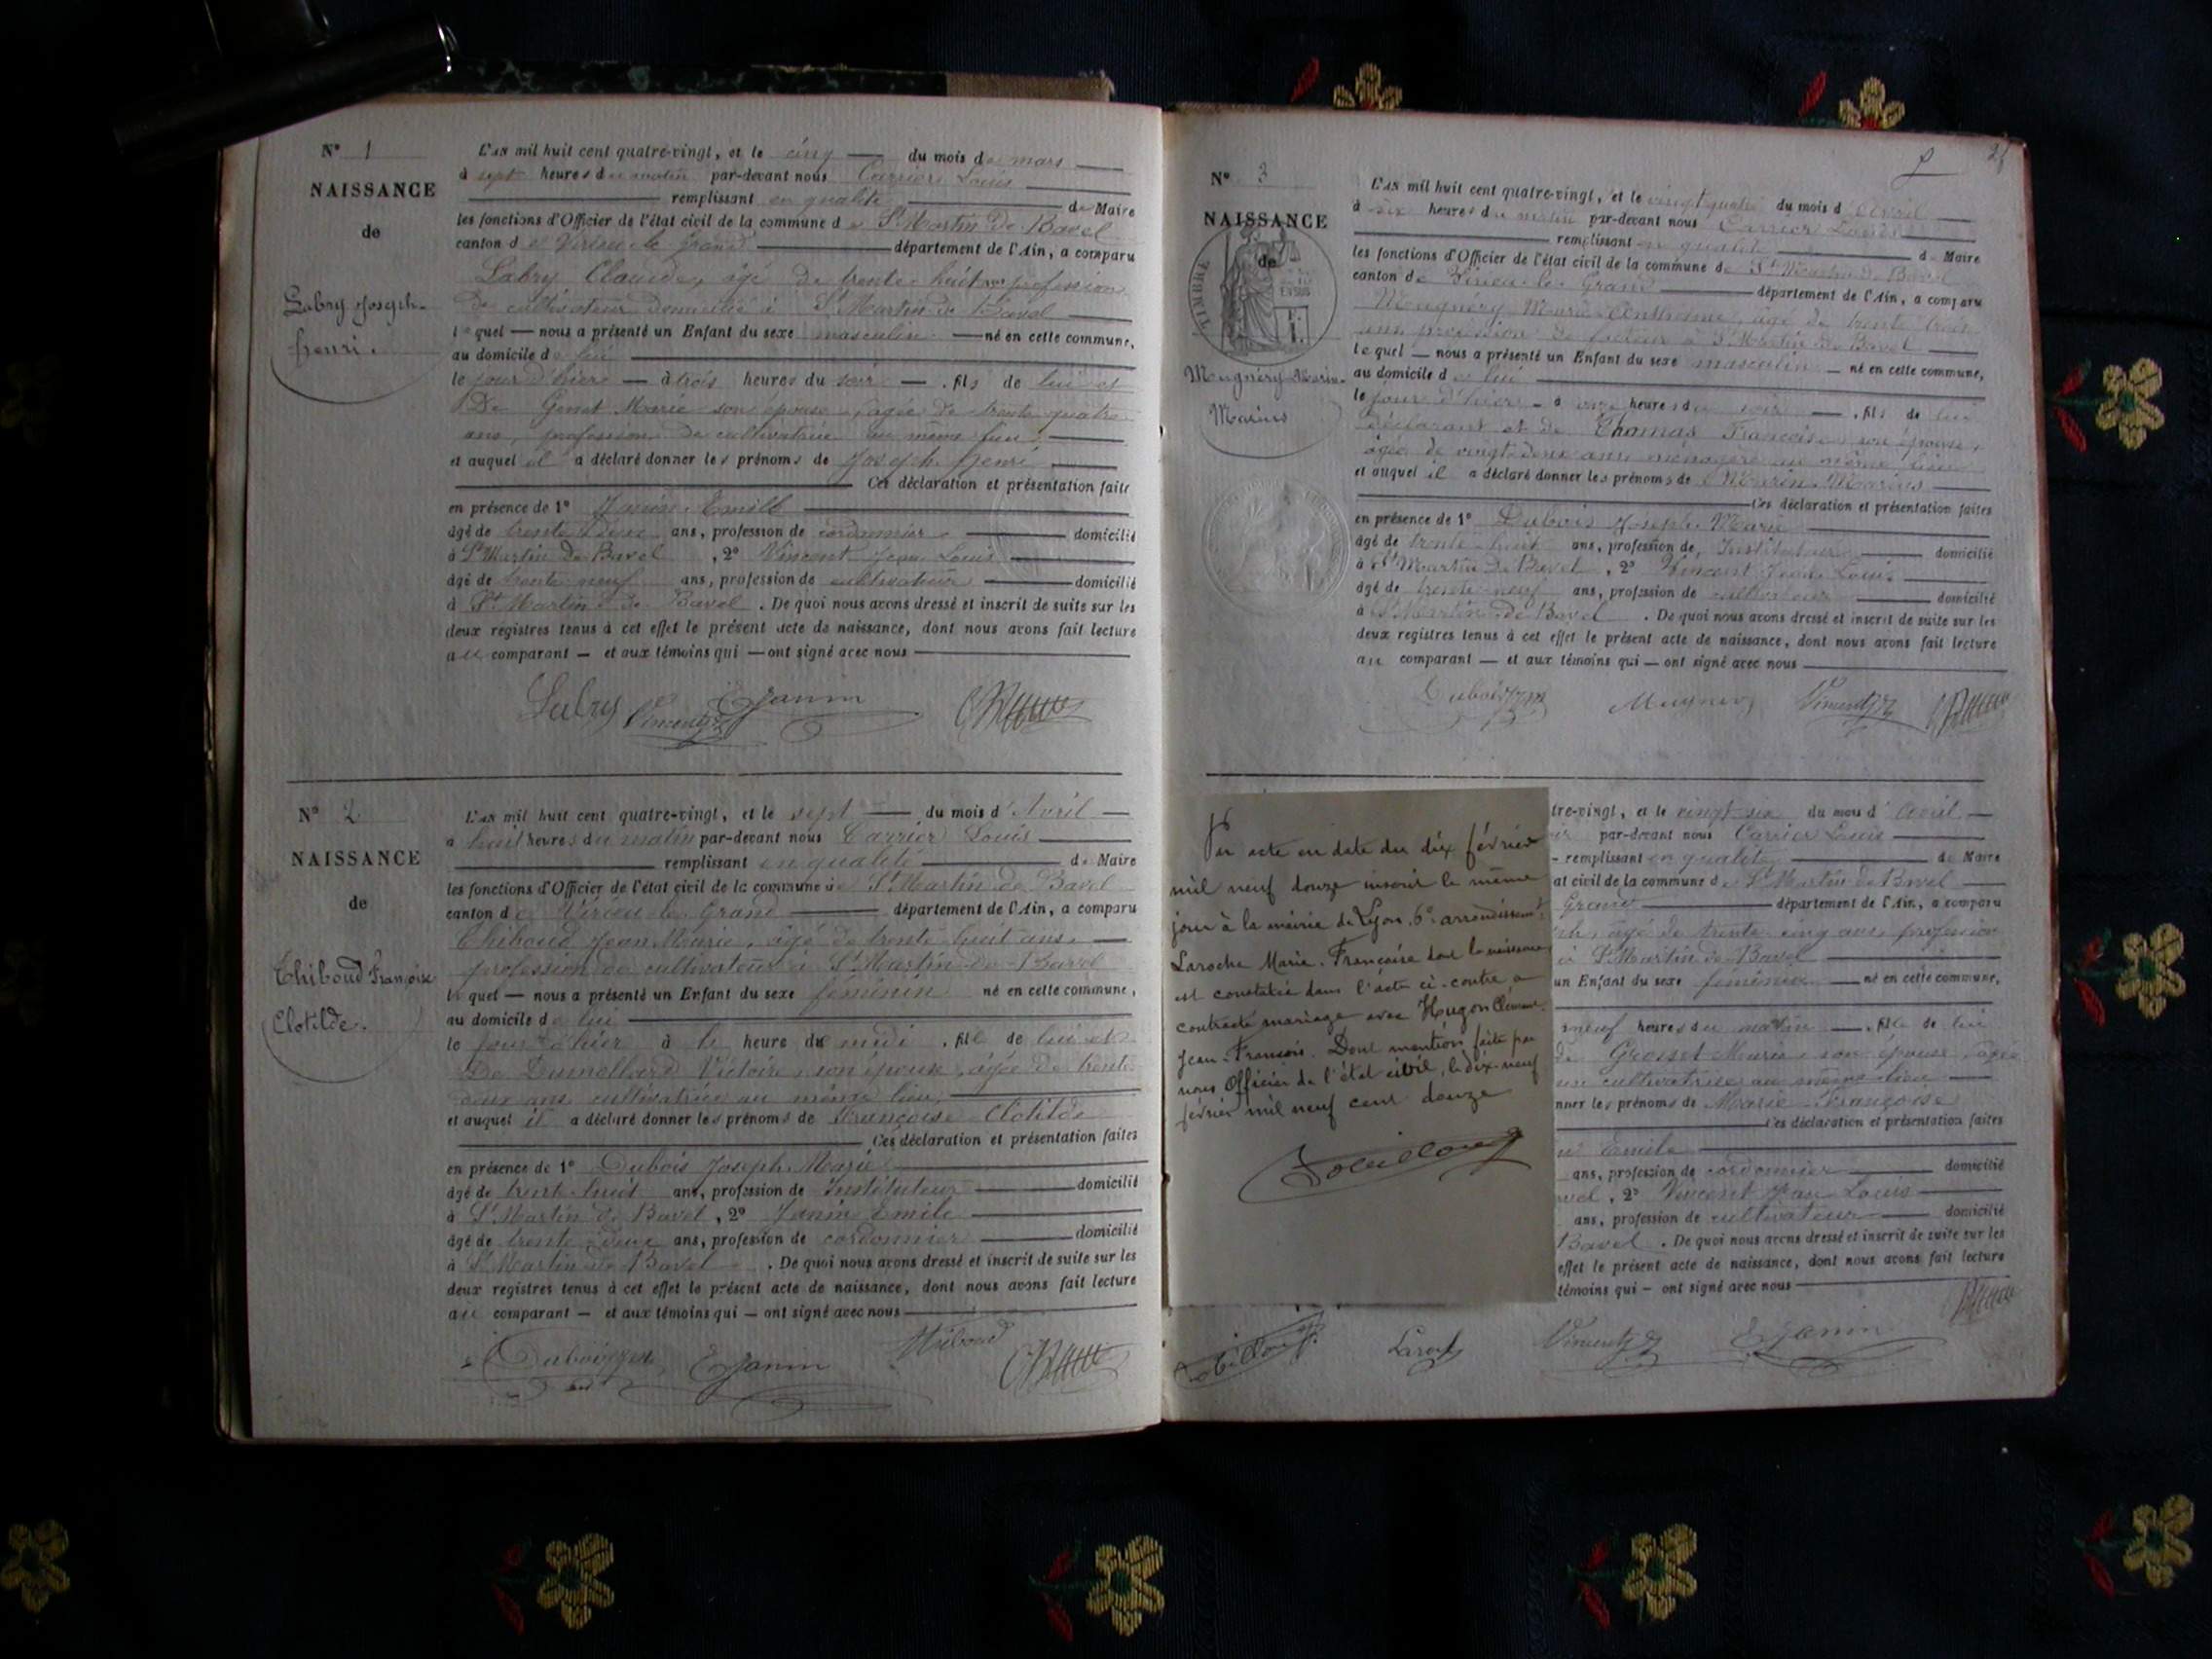 N° 1
NAISSANCE
de
Labry Joseph-
henri.
L'an mil huit cent quatre-vingt, et le cinq du mois de mars
à sept heures du matin par-devant nous Carrier Louis
remplissant en qualité de Maire
les fonctions d'Officier de l'état civil de la commune de St Martin de Bavel
canton de Virieu le Grand département de l'Ain, a comparu
Labry Claude, âgé de trente huit ans profession
de cultivateur domicilié à St Martin de Bavel
lequel — nous a présenté un Enfant du sexe masculin — né en cette commune,
au domicile de lui
le jour d'hier — à trois heures du soir — . fils de lui et
De Genet Marie son épouse, âgée de trente quatre
ans, profession de cultivatrice au même lieu,
et auquel il a déclaré donner les prénoms de Joseph Henri
Ces déclaration et présentation faites
en présence de 1° Janin Emile
âgé de trente deux ans, profession de cordonnier domicilié
à St Martin de Bavel , 2° Vincent Jean Louis
âgé de trente neuf ans, profession de cultivateur domicilié
à St Martin de Bavel . De quoi nous avons dressé et inscrit de suite sur les
deux registres tenus à cet effet le présent acte de naissance, dont nous avons fait lecture
au comparant — et aux témoins qui — ont signé avec nous
Labry Vincent E Janin
N° 2
NAISSANCE
de
Thiboud Françoise
Clotilde.
L'an mil huit cent quatre-vingt, et le sept du mois d'Avril
à huit heures du matin par-devant nous Carrier Louis
remplissant en qualité de Maire
les fonctions d'Officier de l'état civil de la commune de St Martin de Bavel
canton de Virieu le Grand département de l'Ain, a comparu
Thiboud Jean Marie, âgé de trente huit ans.
profession de cultivateur à St Martin de Bavel
lequel — nous a présenté un Enfant du sexe féminin né en cette commune,
au domicile de lui
le jour d'hier à heure de midi . fille de lui et
De Dumollard Victoire, son épouse, âgée de trente
deux ans cultivatrice au même lieu,
et auquel il a déclaré donner les prénoms de Françoise Clotilde
Ces déclaration et présentation faites
en présence de 1° Dubois Joseph Marie
âgé de trente huit ans, profession de Instituteur domicilié
à St Martin de Bavel , 2° Janin Emile
âgé de trente deux ans, profession de cordonnier domicilié
à St Martin de Bavel . De quoi nous avons dressé et inscrit de suite sur les
deux registres tenus à cet effet le présent acte de naissance, dont nous avons fait lecture
au comparant — et aux témoins qui — ont signé avec nous
Dubois E Janin Thiboud
N° 3
NAISSANCE
de
TIMBRE
Mugnéry Marin-
Marius
L'an mil huit cent quatre-vingt, et le vingt quatre du mois d'Avril
à six heures du matin par-devant nous Carrier Louis
remplissant en qualité de Maire
les fonctions d'Officier de l'état civil de la commune de St Martin de Bavel
canton de Virieu le Grand département de l'Ain, a comparu
Mugnéry Marie Anthelme, âgé de trente trois
ans profession de facteur à St Martin de Bavel
lequel — nous a présenté un Enfant du sexe masculin — né en cette commune,
au domicile de lui
le jour d'hier — à onze heures du soir — . fils de lui
déclarant et de Thomas Françoise son épouse,
âgée de vingt deux ans ménagère au même lieu
et auquel il a déclaré donner les prénoms de Marin Marius
Ces déclaration et présentation faites
en présence de 1° Dubois Joseph Marie
âgé de trente huit ans, profession de Instituteur domicilié
à St Martin de Bavel , 2° Vincent Jean Louis
âgé de trente neuf ans, profession de cultivateur domicilié
à St Martin de Bavel . De quoi nous avons dressé et inscrit de suite sur les
deux registres tenus à cet effet le présent acte de naissance, dont nous avons fait lecture
au comparant — et aux témoins qui — ont signé avec nous
Dubois Mugnery Vincent
Par acte en date du dix février
mil neuf douze inscrit le même
jour à la mairie de Lyon, 6e arrondissemt
Laroche Marie-Françoise dont la naissance
est constatée dans l'acte ci-contre, a
contracté mariage avec Hugon Clément
Jean-François. Dont mention faite par
nous Officier de l'état civil, le dix-neuf
février mil neuf cent douze
tre-vingt, et le vingt six du mois d'Avril
par-devant nous Carrier Louis
remplissant en qualité de Maire
at civil de la commune de St Martin de Bavel
Grand département de l'Ain, a comparu
âgé de trente cinq ans, profession
à St Martin de Bavel
un Enfant du sexe féminin — né en cette commune,
neuf heures du matin — . fille de lui
de Grosset Marie, son épouse âgée
cultivatrice au même lieu
nner les prénoms de Marie Françoise
Ces déclaration et présentation faites
Emile
ans, profession de cordonnier domicilié
vel , 2° Vincent Jean Louis
ans, profession de cultivateur domicilié
Bavel . De quoi nous avons dressé et inscrit de suite sur les
effet le présent acte de naissance, dont nous avons fait lecture
témoins qui — ont signé avec nous
Vincent E Janin